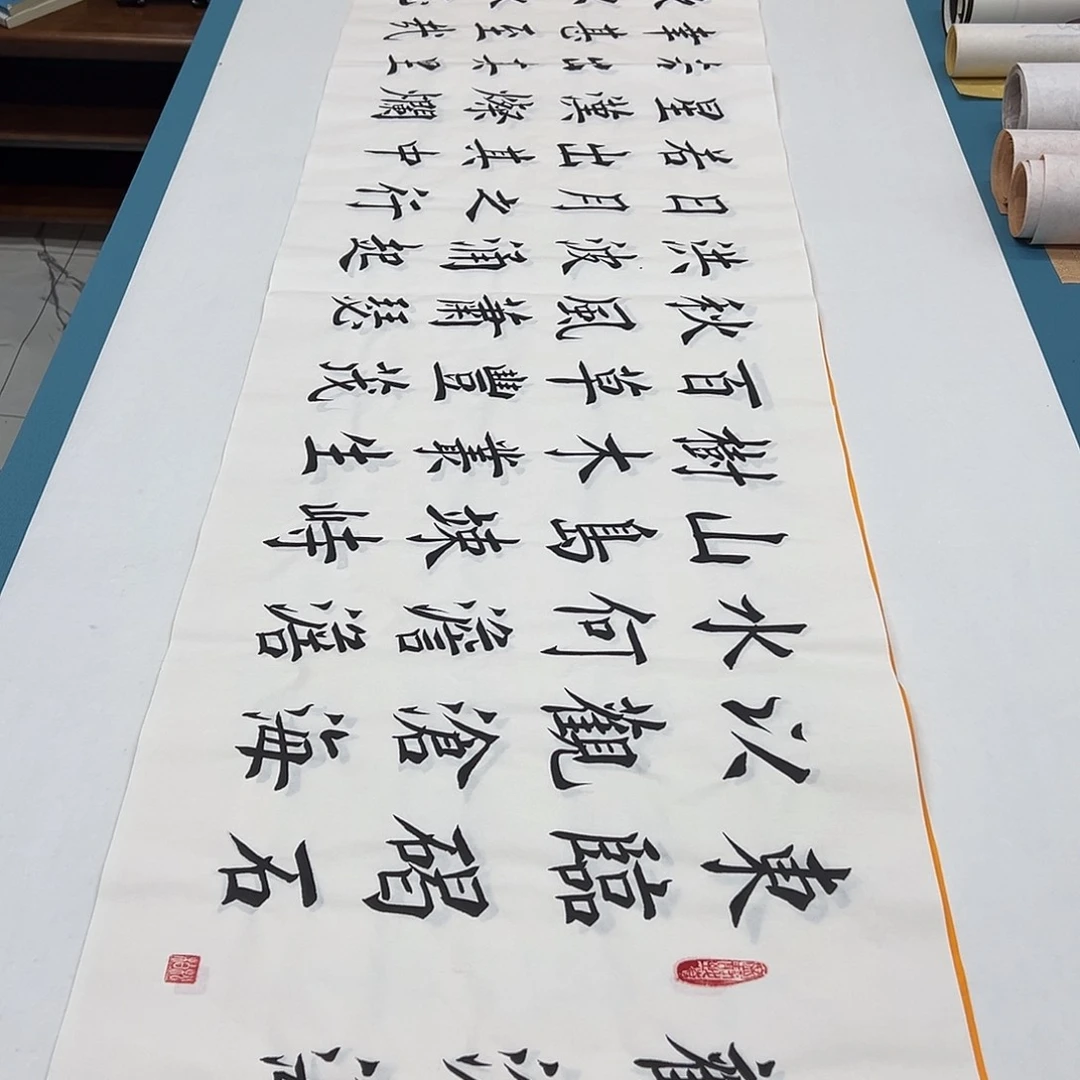 東臨碣石
以觀滄海
水何澹澹
山島竦峙
樹木叢生
百草豐茂
秋風蕭瑟
洪波涌起
日月之行
若出其中
星漢燦爛
若出其里
幸甚至哉